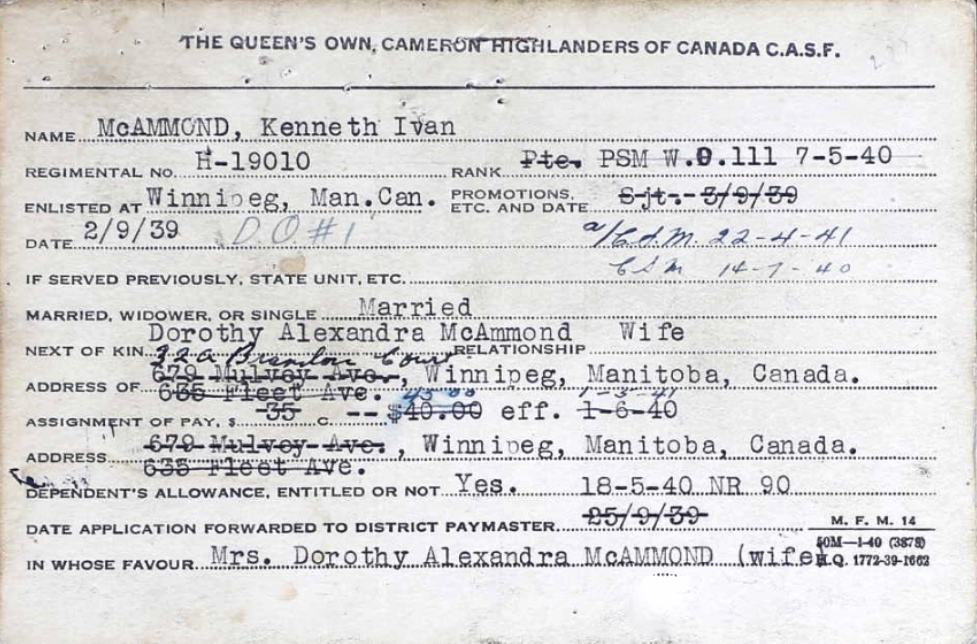 THE QUEEN'S OWN, CAMERON HIGHLANDERS OF CANADA C.A.S.F.
NAME McAMMOND, Kenneth Ivan
REGIMENTAL No. H-19010 RANK Pte. PSM W.O.111 7-5-40
ENLISTED AT Winnipeg, Man.Can. PROMOTIONS, ETC. AND DATE Sjt.- 3/9/39
DATE 2/9/39 D.O #1 a/C.S.M. 22-4-41
CSM 14-7-40
IF SERVED PREVIOUSLY, STATE UNIT, ETC.
MARRIED, WIDOWER, OR SINGLE Married
NEXT OF KIN Dorothy Alexandra McAmmond RELATIONSHIP Wife
32A Brandon Court
ADDRESS OF 679 Mulvey Ave., Winnipeg, Manitoba, Canada.
635 Fleet Ave. 45 00 1-3-41
ASSIGNMENT OF PAY, $ 35 C. -- $40.00 eff. 1-6-40
ADDRESS 679 Mulvey Ave. , Winnipeg, Manitoba, Canada.
635 Fleet Ave.
DEPENDENT'S ALLOWANCE, ENTITLED OR NOT Yes. 18-5-40 NR 90
DATE APPLICATION FORWARDED TO DISTRICT PAYMASTER 25/9/39
M. F. M. 14
50M—1-40 (3878)
H.Q. 1772-39-1662
IN WHOSE FAVOUR Mrs. Dorothy Alexandra McAMMOND (wife